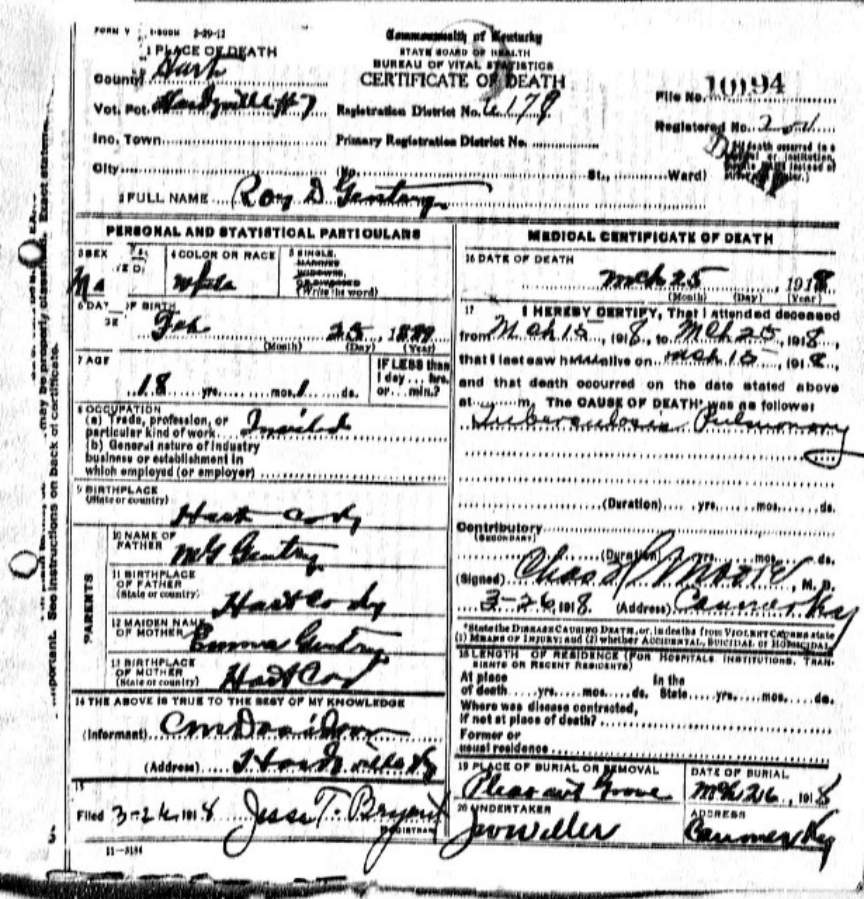 FORM V 1-500M 2-29-12
Commonwealth of Kentucky
STATE BOARD OF HEALTH
BUREAU OF VITAL STATISTICS
CERTIFICATE OF DEATH
1 PLACE OF DEATH
County Hart
Vot. Pct. Hardyville #7
Registration District No. 6179
File No. 10194
Registered No.
Inc. Town
Primary Registration District No.
City
St., Ward)
2 FULL NAME Roy D Gentry
PERSONAL AND STATISTICAL PARTICULARS
3 SEX Ma
4 COLOR OR RACE White
5 SINGLE,
MARRIED
WIDOWED,
OR DIVORCED
(Write the word)
6 DATE OF BIRTH
Feb 25
(Month) (Day) (Year)
7 AGE
18 yrs. mos. 1 ds.
IF LESS than
1 day... hrs.
or... min.?
8 OCCUPATION
(a) Trade, profession, or
particular kind of work
(b) General nature of industry
business or establishment in
which employed (or employer)
9 BIRTHPLACE
(State or country)
Hart Co Ky
PARENTS
10 NAME OF
FATHER
M G Gentry
11 BIRTHPLACE
OF FATHER
(State or country)
Hart Co Ky
12 MAIDEN NAME
OF MOTHER
Emma Gentry
13 BIRTHPLACE
OF MOTHER
(State or country)
Hart Co
14 THE ABOVE IS TRUE TO THE BEST OF MY KNOWLEDGE
(Informant)
(Address) Hardyville Ky
15
Filed 3-26 1918 Jesse T. Bryant
REGISTRAR
11-3184
MEDICAL CERTIFICATE OF DEATH
16 DATE OF DEATH
Mch 25, 1918
(Month) (Day) (Year)
17 I HEREBY CERTIFY, That I attended deceased
from Mch 15, 1918, to Mch 25, 1918,
that I last saw him alive on Mch 15, 1918,
and that death occurred on the date stated above
at m. The CAUSE OF DEATH* was as follows:
Tuberculosis Pulmonary
(Duration) yrs. mos. ds.
Contributory
(SECONDARY)
(Duration) yrs. mos. ds.
(Signed) Chas H Moore, M. D.
3-26 1918 (Address) Canmer Ky
*State the DISEASE CAUSING DEATH, or, in deaths from VIOLENT CAUSES state
(1) MEANS OF INJURY; and (2) whether ACCIDENTAL, SUICIDAL or HOMICIDAL
18 LENGTH OF RESIDENCE (FOR HOSPITALS INSTITUTIONS, TRANSIENTS OR RECENT RESIDENTS)
At place In the
of death yrs. mos. ds. State yrs. mos. ds.
Where was disease contracted,
if not at place of death?
Former or
usual residence
19 PLACE OF BURIAL OR REMOVAL
Pleasant Grove
DATE OF BURIAL
Mch 26, 1918
20 UNDERTAKER
ADDRESS
Canmer Ky